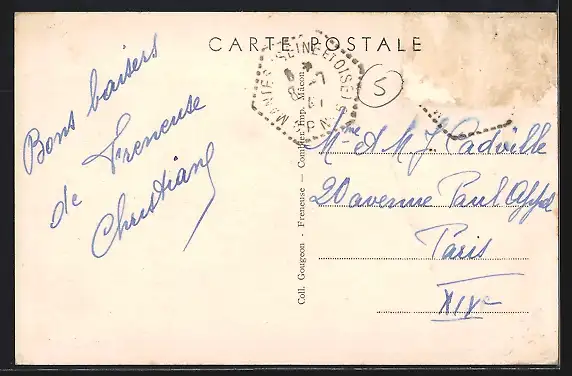 CARTE POSTALE
MANTES SEINE ET OISE
5
Bons baisers
de Freneuse
Christiane
Coll. Gougeon - Freneuse — Combier Imp. Mâcon
Mme et M J. Cadville
20 avenue Paul App
Paris
XIVe